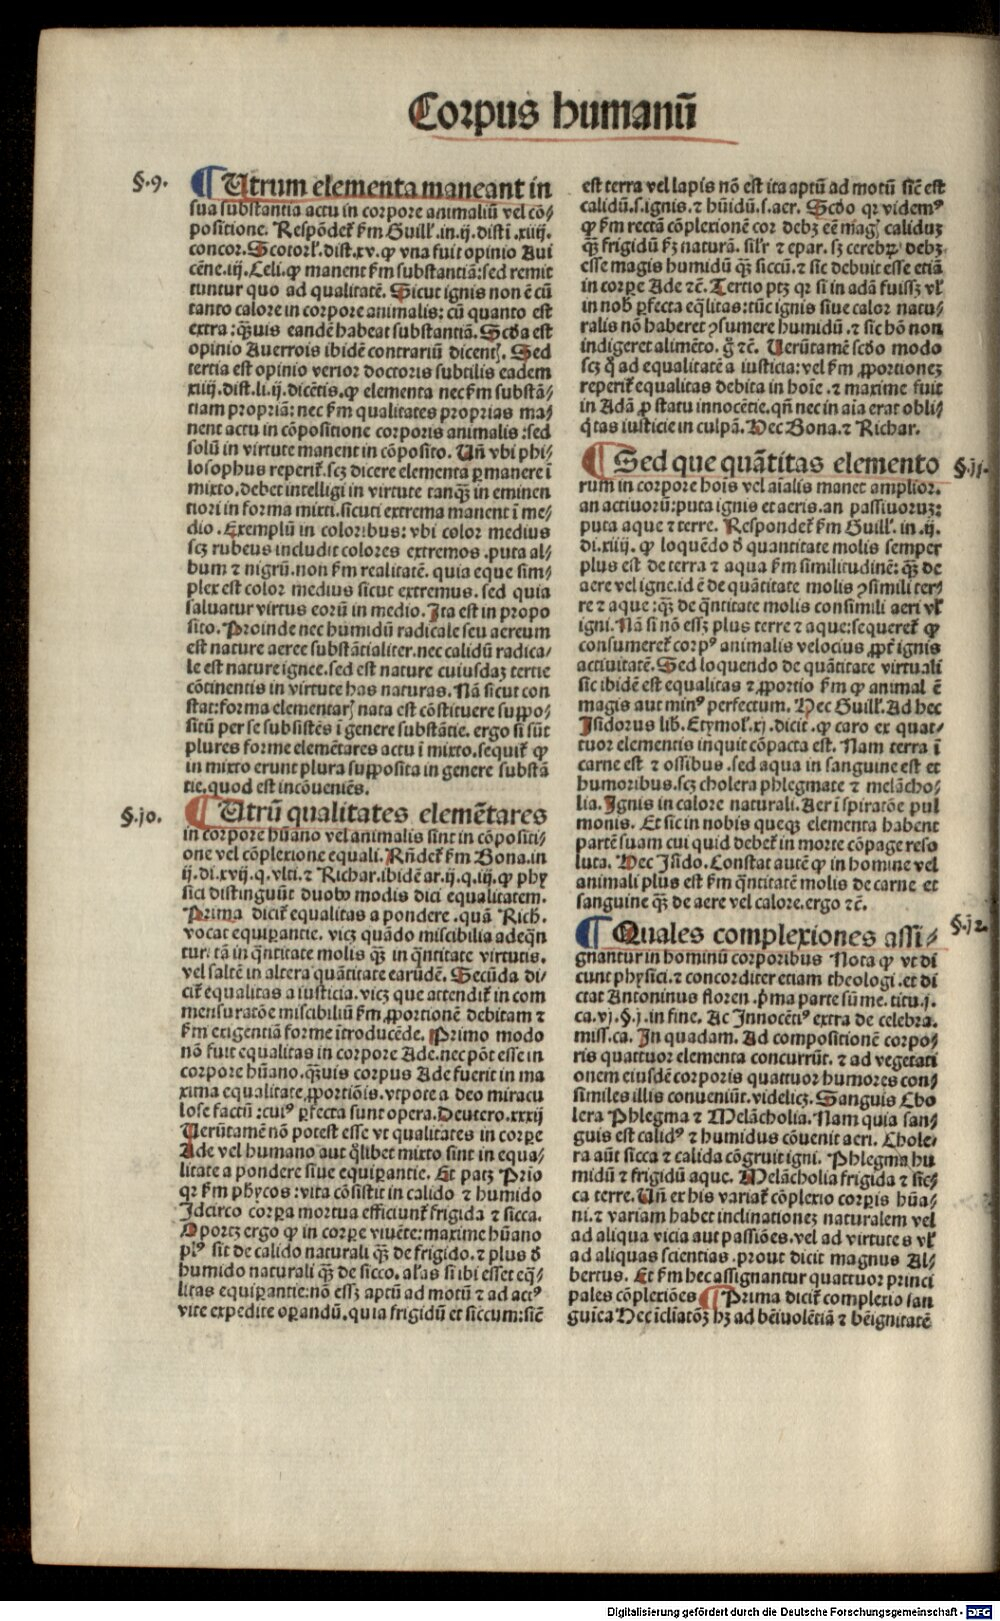 Corpus humanū
§.9.
¶ Utrum elementa maneant in
sua substantia actu in corpore animaliū vel cō⸗
positione. Respōdet᷑ ẜm Guill᷑.in.ij.disti.xiiij.
concor.Scotorl᷑.dist.xv.ꝙ vna fuit opinio Aui
cēne.iij.Celi.ꝙ manent ẜm substantiā:sed remit
tuntur quo ad qualitatē. Sicut ignis non ē cū
tanto calore in corpore animalis: cū quanto est
extra:q̄ꝫuis eandē habeat substantiā. Scd̄a est
opinio Auerrois ibidē contrariū dicentꝭ. Sed
tertia est opinio verior doctoris subtilis eadem
xiiij.dist.li.ij.dicētis.ꝙ elementa nec ẜm substā⸗
tiam propriā: nec ẜm qualitates proprias ma⸗
nent actu in cōpositione corporis animalis:sed
solū in virtute manent in cōposito. Un̄ vbi phi⸗
losophus reperit᷑.scꝫ dicere elementa ꝑmanere ī
mixto.debet intelligi in virtute tanq̄ꝫ in eminen
tiori in forma mixti.sicuti extrema manent ī me⸗
dio. Exemplū in coloribus: vbi color medius
scꝫ rubeus includit colores extremos.puta al⸗
bum ⁊ nigrū.non ẜm realitatē. quia eque sim⸗
plex est color medius sicut extremus. sed quia
saluatur virtus eorū in medio. Ita est in propo
sito. Proinde nec humidū radicale seu aereum
est nature aeree substātialiter.nec calidū radica⸗
le est nature ignee.sed est nature cuiusdaꝫ tertie
cōtinentis in virtute has naturas. Nā sicut con
stat:forma elementarꝭ nata est cōstituere suppo⸗
sitū per se subsistēs ī genere substātie. ergo si sūt
plures forme elemētares actu ī mixto.sequit᷑ ꝙ
in mixto erunt plura supposita in genere substā
tie.quod est incōueniēs.
§.jo.
¶ Utrū qualitates elemētares
in corpore hūano vel animalis sint in cōpositi⸗
one vel cōplexione equali. Rn̄det᷑ ẜm Bona.in
ij.di.xvij.q.vlti.⁊ Richar.ibidē ar.ij.q.iij.ꝙ phy
sici distinguūt duobꝰ modis dici equalitatem.
Prima dicit᷑ equalitas a pondere.quā Rich.
vocat equiꝑantie. vicꝫ quādo miscibilia adeq̄n
tur. tā in q̄ntitate molis q̄ꝫ in q̄ntitate virtutis.
vel saltē in altera quātitate earūdē. Secūda di⸗
cit᷑ equalitas a iusticia.vicꝫ que attendit᷑ in com
mensuratōe miscibiliū ẜm ꝓportionē debitam ⁊
ẜm exigentiā forme ītroducēde. Primo modo
nō fuit equalitas in corpore Ade.nec pōt esse in
corpore hūano.q̄ꝫuis corpus Ade fuerit in ma
xima equalitate ꝓportiōis.vtpote a deo miracu
lose factū:cuiꝰ ꝑfecta sunt opera.Deutero.xxxij
Uerūtamē nō potest esse vt qualitates in corꝑe
Ade vel humano aut q̄libet mixto sint in equa⸗
litate a pondere siue equiꝑantie. Et patꝫ Prīo
qꝛ ẜm phycos:vita cōsistit in calido ⁊ humido
Idcirco corꝑa mortua efficiunt᷑ frigida ⁊ sicca.
Oportꝫ ergo ꝙ in corꝑe viuēte: maxime hūano
plꝰ sit de calido naturali q̄ꝫ de frigido.⁊ plus d̄
humido naturali q̄ꝫ de sicco.al᷑as si ibi esset eq̄⸗
litas equiꝑantie:nō essꝫ aptū ad motū ⁊ ad actꝰ
vite expedite oꝑandū.quia frigidū et siccum:siē
est terra vel lapis nō est ita aptū ad motū siē est
calidū.s.ignis.⁊ hūidū.s.aer. Scd̄o qꝛ videmꝰ
ꝙ ẜm rectā cōplexionē cor debꝫ eē magꝭ calidus
q̄ꝫ frigidū ẜꝫ naturā. sil᷑r ⁊ epar.sꝫ cerebꝝ debꝫ
esse magis humidū q̄ꝫ siccū.⁊ sic debuit esse etiā
in corꝑe Ade ⁊c̄. Tertio ptꝫ qꝛ si in adā fuissꝫ vl᷑
in nob̄ ꝑfecta eq̄litas:tūc ignis siue calor natu⸗
ralis nō haberet ꝯsumere humidū.⁊ sic hō non
indigeret alimēto. g̊ ⁊c̄. Uerūtamē scd̄o modo
scꝫ q̄ ad equalitatē a iusticia:vel ẜm ꝓportionez
reperit᷑ equalitas debita in hoīe.⁊ maxime fuit
in Adā ꝓ statu innocētie.qn̄ nec in aīa erat obli⸗
q̄tas iusticie in culpā. Hec Bona.⁊ Richar.
¶ Sed que quātitas elemento
§.jj.
rum in corpore hoīs vel aīalis manet amplior.
an actiuorū:puta ignis et aeris.an passiuoruꝫ:
puta aque ⁊ terre. Respondet᷑ ẜm Guill᷑.in.ij.
di.xiiij. ꝙ loquēdo d̄ quantitate molis semper
plus est de terra ⁊ aqua ẜm similitudinē: q̄ꝫ de
aere vel igne.id ē de quātitate molis ꝯsimili ter⸗
re ⁊ aque:q̄ꝫ de q̄ntitate molis consimili aeri vl᷑
igni. Nā si nō essꝫ plus terre ⁊ aque:sequeret᷑ ꝙ
consumeret᷑ corpꝰ animalis velocius ꝓpt᷑ ignis
actiuitatē. Sed loquendo de quātitate virtuali
sic ibidē est equalitas ⁊ ꝓportio ẜm ꝙ animal ē
magis aut minꝰ perfectum. Hec Guill᷑. Ad hec
Isidorus lib. Etymol᷑.xj.dicit.ꝙ caro ex quat⸗
tuor elementis inquit cōpacta est. Nam terra ī
carne est ⁊ ossibus.sed aqua in sanguine est et
humoribus.scꝫ cholera phlegmate ⁊ melācho⸗
lia. Ignis in calore naturali. Aer ī spiratōe pul
monis. Et sic in nobis queqꝫ elementa habent
partē suam cui quid debet᷑ in morte cōpage reso
luta. Hec Isido. Constat autē ꝙ in homine vel
animali plus est ẜm q̄ntitatē molis de carne et
sanguine q̄ꝫ de aere vel calore.ergo ⁊c̄.
¶ Quales complexiones assi⸗
§.jz.
gnantur in hominū corporibus Nota ꝙ vt di
cunt physici.⁊ concorditer etiam theologi.et di
ctat Antoninus floren.p̄ma parte sūme.titu.j.
ca.vj.§.j.in fine. Ac Innocētiꝰ extra de celebra.
miss.ca. In quadam. Ad compositionē corpo⸗
ris quattuor elementa concurrūt.⁊ ad vegetati
onem eiusdē corporis quattuor humores con⸗
similes illis conueniūt.videlicꝫ. Sanguis Cho
lera Phlegma ⁊ Melācholia. Nam quia san⸗
guis est calidꝰ ⁊ humidus cōuenit aeri. Chole⸗
ra aūt sicca ⁊ calida cōgruit igni. Phlegma hu
midū ⁊ frigidū aque. Melācholia frigida ⁊ sic⸗
ca terre. Un̄ ex his variat᷑ cōplexio corꝑis hūa⸗
ni.⁊ variam habet inclinationeꝫ naturalem vel
ad aliqua vicia aut passiōes.vel ad virtutes vl᷑
ad aliquas scientias.prout dicit magnus Al⸗
bertus. Et ẜm hec assignantur quattuor princi
pales cōplexiōes ¶ Prima dicit᷑ complexio san
guica Hec iclīatōꝫ hꝫ ad bēiuolētiā ⁊ bēignitatē
Digitalisierung gefördert durch die Deutsche Forschungsgemeinschaft - DFG